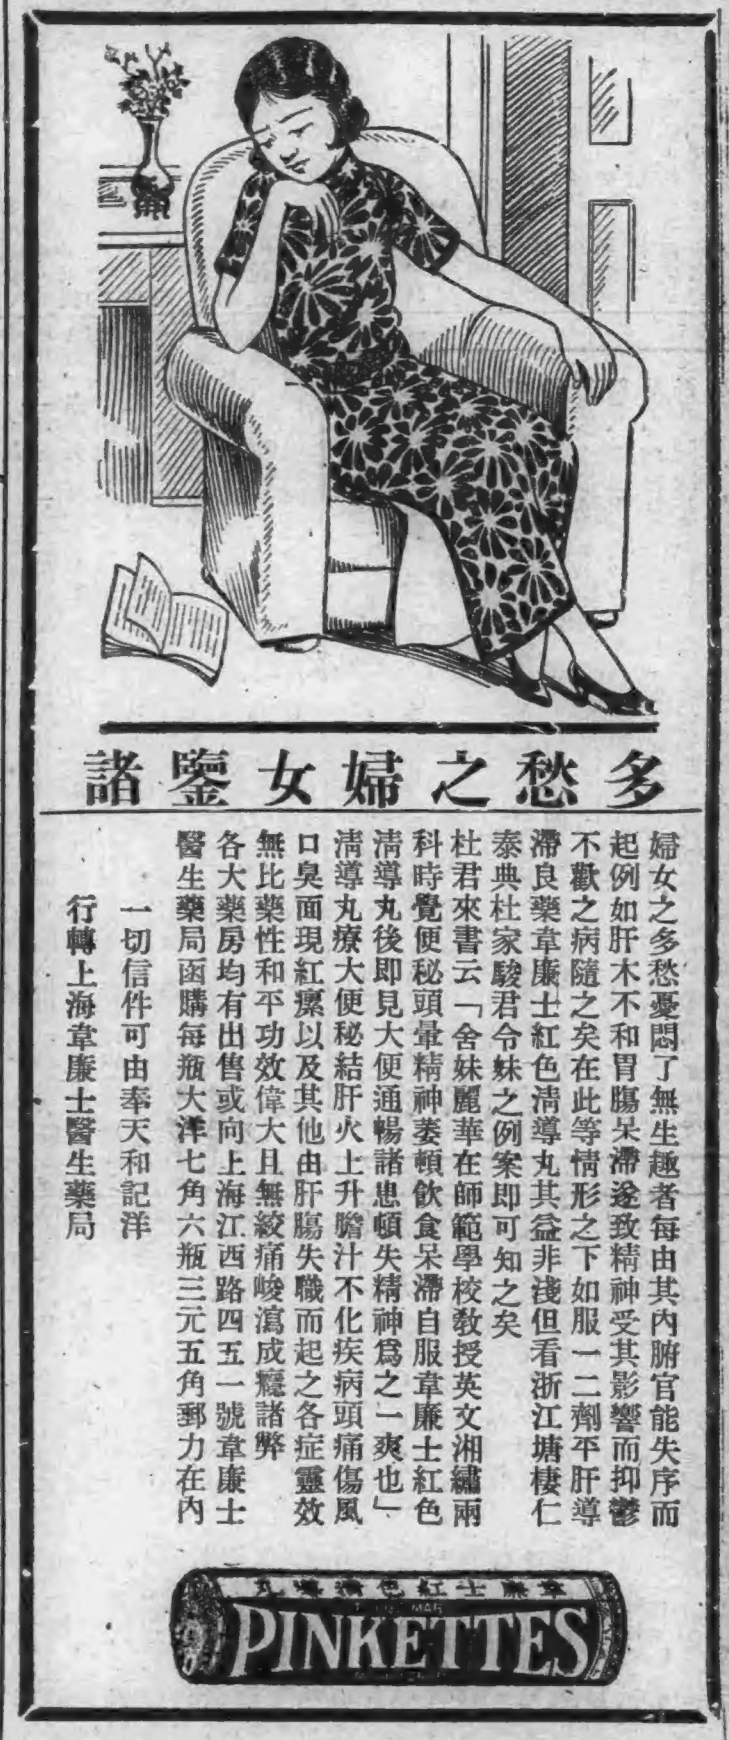 多愁之婦女鑒諸
婦女之多愁憂悶了無生趣者每由其內腑官能失序而
起例如肝木不和胃腸呆滯遂致精神受其影響而抑鬱
不歡之病隨之矣在此等情形之下如服一二劑平肝導
滯良藥韋廉士紅色清導丸其益非淺但看浙江塘棲仁
泰典杜家駿君令妹之例案即可知之矣
杜君來書云「舍妹麗華在師範學校敎授英文湘繡兩
科時覺便秘頭暈精神萎頓飲食呆滯自服韋廉士紅色
淸導丸後即見大便通暢諸患頓失精神爲之一爽也」
淸導丸療大便秘結肝火上升膽汁不化疾病頭痛傷風
口臭面現紅瘰以及其他由肝腸失職而起之各症靈效
無比藥性和平功效偉大且無絞痛峻瀉成癮諸弊
各大藥房均有出售或向上海江西路四五一號韋廉士
醫生藥局函購每瓶大洋七角六瓶三元五角郵力在內
一切信件可由奉天和記洋
行轉上海韋廉士醫生藥局
韋廉士紅色清導丸
PINKETTES